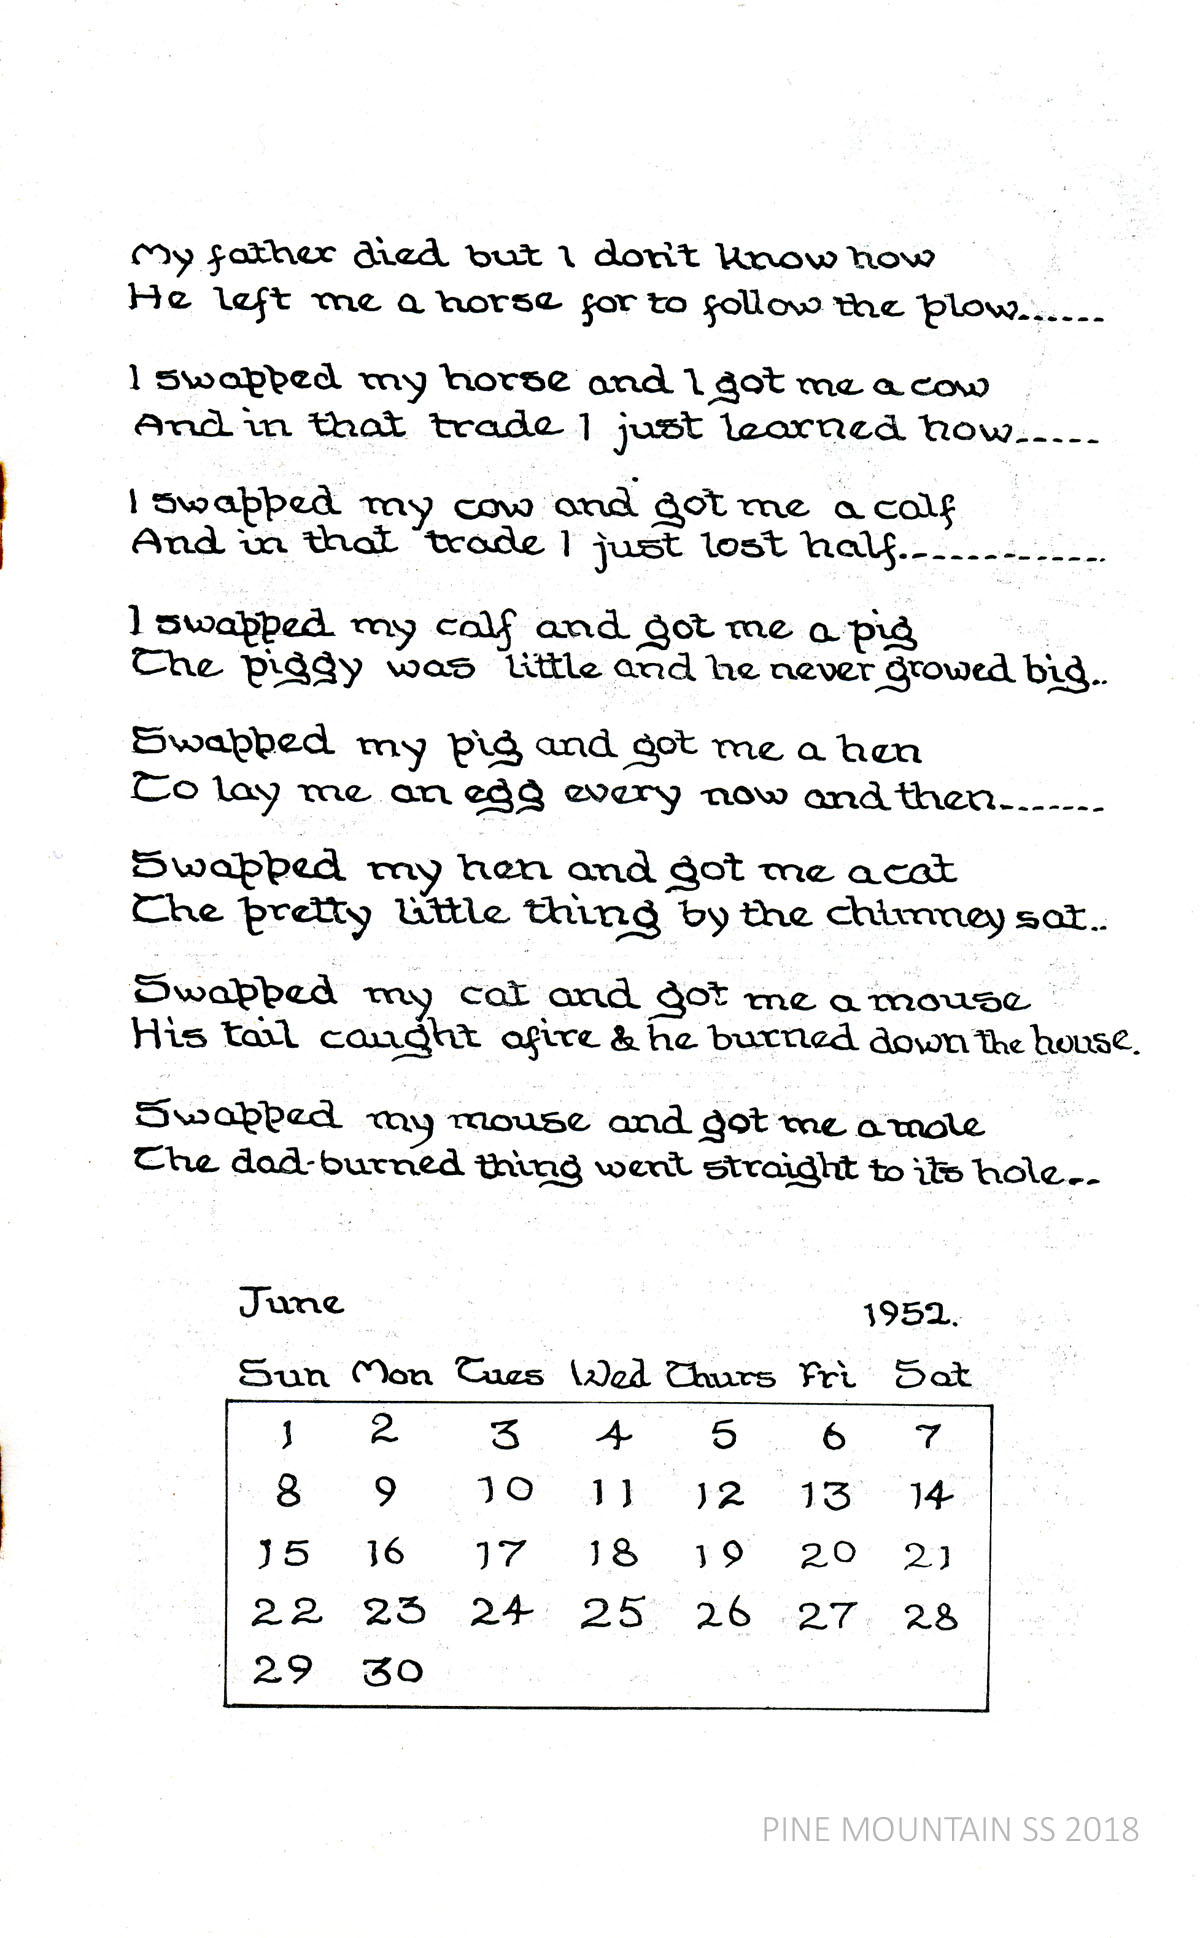 My father died but I don't know how
He left me a horse for to follow the plow......
I swapped my horse and I got me a cow
And in that trade I just learned how.....
I swapped my cow and got me a calf
And in that trade I just lost half..............
I swapped my calf and got me a pig
The piggy was little and he never growed big..
Swapped my pig and got me a hen
To lay me an egg every now and then.......
Swapped my hen and got me a cat
The pretty little thing by the chimney sat..
Swapped my cat and got me a mouse
His tail caught afire & he burned down the house.
Swapped my mouse and got me a mole
The dad-burned thing went straight to its hole...
June 1952.
Sun Mon Tues Wed Thurs Fri Sat
1 2 3 4 5 6 7
8 9 10 11 12 13 14
15 16 17 18 19 20 21
22 23 24 25 26 27 28
29 30
PINE MOUNTAIN SS 2018